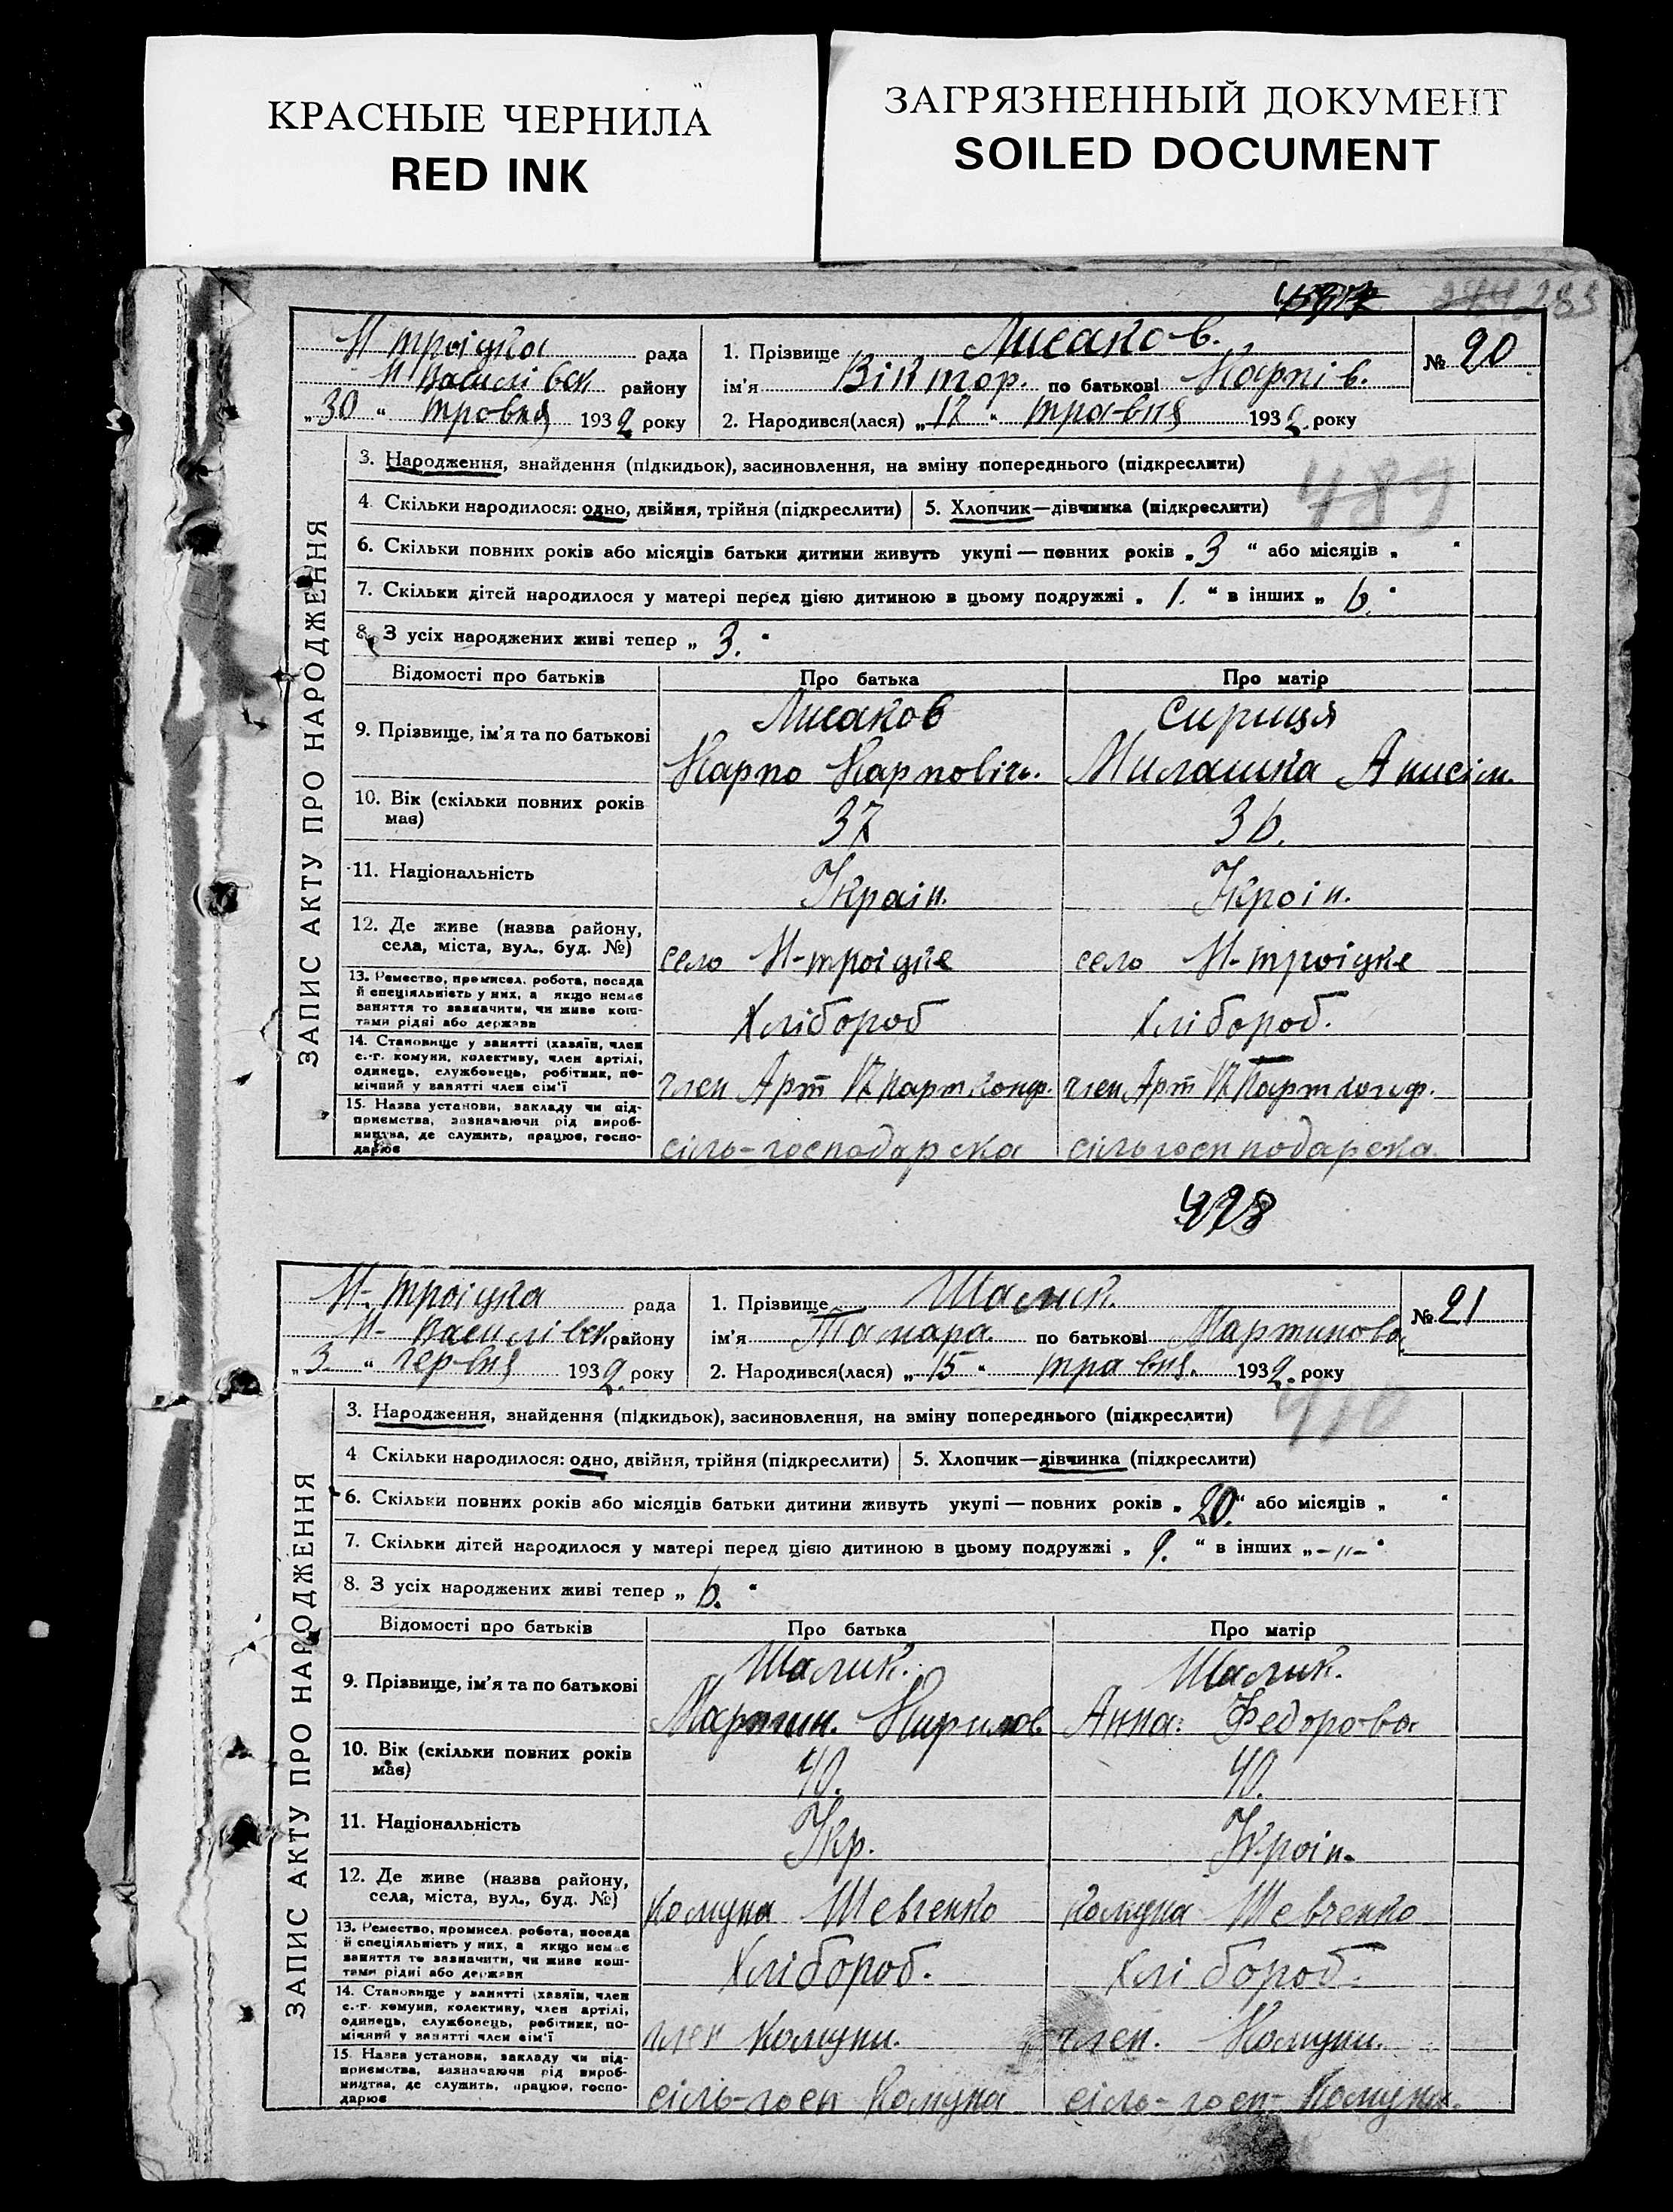 КРАСНЫЕ ЧЕРНИЛА
RED INK
ЗАГРЯЗНЕННЫЙ ДОКУМЕНТ
SOILED DOCUMENT
283
Н троіцка рада
Н Василівск району
„30" тровня 1932 року
1. Прізвище Лисаков.
ім'я Віктор. по батькові Карпів.
2. Народився(лася) „17" травня 1932. року
№ 20
ЗАПИС АКТУ ПРО НАРОДЖЕННЯ
3. Народження, знайдення (підкидьок), засиновлення, на зміну попереднього (підкреслити)
489
4 Скільки народилося: одно, двійня, трійня (підкреслити)
5. Хлопчик—дівчинка (підкреслити)
6. Скільки повних років або місяців батьки дитини живуть укупі — повних років „3" або місяців „ "
7. Скільки дітей народилося у матері перед цією дитиною в цьому подружжі „1." в інших „6."
8. З усіх народжених живі тепер „3."
Відомості про батьків Про батька Про матір
9. Прізвище, ім'я та по батькові
Лисаков
Карпо Карпович.
Сириця
Милашка Анисім.
10. Вік (скільки повних років має)
37
36.
11. Національність
Україн.
Україн.
12. Де живе (назва району, села, міста, вул., буд. №)
село Н-троіцке
село Н-троіцке
13. Ремество, промисел, робота, посада
й спеціяльність у них, а якщо немає
заняття то зазначити, чи живе кош-
тами рідні або держави
Хлібороб
Хлібороб.
14. Становище у занятті (хазяїн, член
с.-г. комуни, колективу, член артілі,
одинець, службовець, робітник, по-
мічний у занятті член сім'ї
член Арт 17 парт конф.
член Арт 17 Парт конф.
15. Назва установи, закладу чи під-
приємства, зазначаючи рід вироб-
ництва, де служить, працює, госпо-
дарює
сіль-господарска
сільгосп подарска
Н-троіцка рада
Н- Василівск району
„3" червня 1932. року
1. Прізвище Шалик.
ім'я Тамара. по батькові Мартинова
2. Народився(лася) „15" травня. 1932. року
№ 21
ЗАПИС АКТУ ПРО НАРОДЖЕННЯ
3. Народження, знайдення (підкидьок), засиновлення, на зміну попереднього (підкреслити)
4 Скільки народилося: одно, двійня, трійня (підкреслити)
5. Хлопчик—дівчинка (підкреслити)
6. Скільки повних років або місяців батьки дитини живуть укупі — повних років „20." або місяців „ "
7. Скільки дітей народилося у матері перед цією дитиною в цьому подружжі „9." в інших „-"-"
8. З усіх народжених живі тепер „6."
Відомості про батьків Про батька Про матір
9. Прізвище, ім'я та по батькові
Шалик.
Мартин. Кирилов
Шалик.
Анна. Федорова
10. Вік (скільки повних років має)
40.
40.
11. Національність
Укр.
Україн.
12. Де живе (назва району, села, міста, вул., буд. №)
комуна Шевченко
комуна Шевченко
13. Ремество, промисел, робота, посада
й спеціяльність у них, а якщо немає
заняття то зазначити, чи живе кош-
тами рідні або держави
Хлібороб.
Хлібороб.
14. Становище у занятті (хазяїн, член
с.-г. комуни, колективу, член артілі,
одинець, службовець, робітник, по-
мічний у занятті член сім'ї
член комуни.
член. Комуни.
15. Назва установи, закладу чи під-
приємства, зазначаючи рід вироб-
ництва, де служить, працює, госпо-
дарює
сіль-госп Комуна
сіль-госп- Комуна.